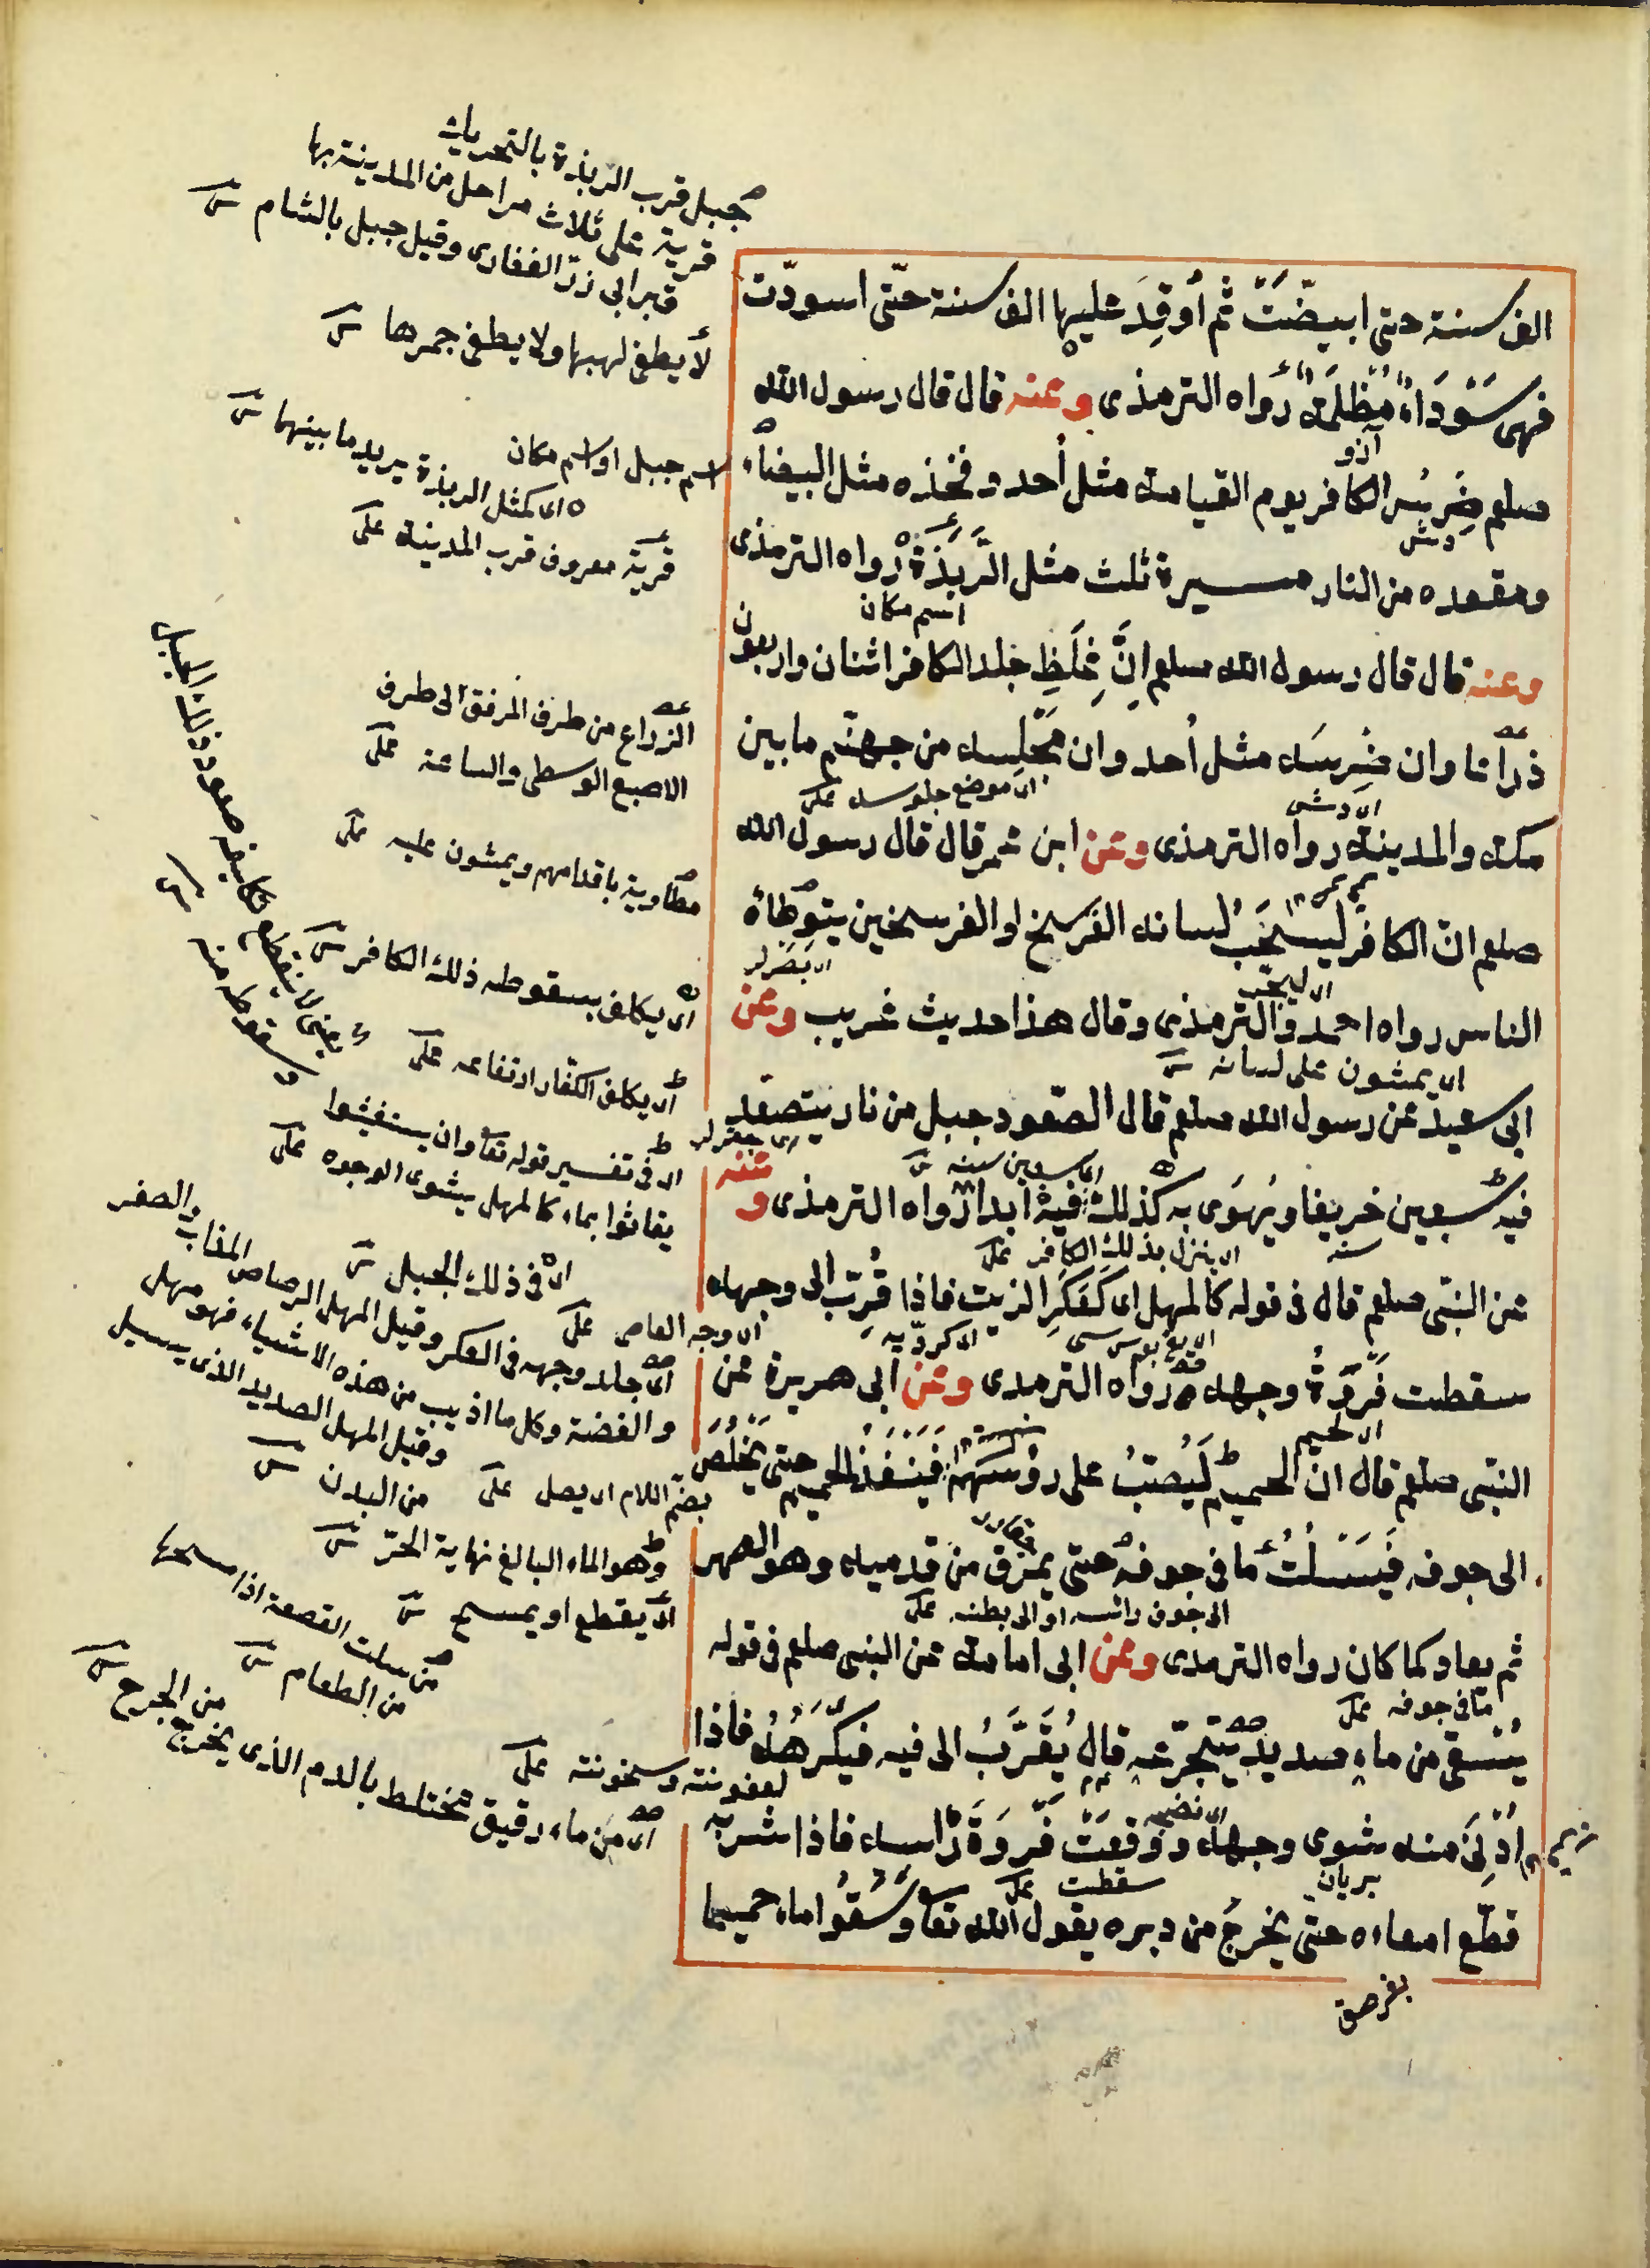 الف سنة حتى ابيضّت ثم أُوقِدَ عليها الف سنة حتّى اسودّت
فهى سَوْدَاءُ مُظْلِمَةٌ رواه الترمذى وعنه قال قال رسول الله
صلعم ضِرسُ الكافر يوم القيامة مثل أُحد وفخذه مثل البيضاء
ومقعده من النار مسيرة ثلث مثل الرَّبَذَة رواه الترمذى
اسم مكان
وعنه قال قال رسول الله صلعم انَّ غِلَظَ جلد الكافر اثنان واربعون
ذراعا وان ضِرسَه مثل أُحد وان مَجْلِسه من جهنّم ما بين
اى موضع جلوسه على
مكة والمدينة رواه الترمذى وعن ابن عمر قال قال رسول الله
صلعم انّ الكافر ليسحَبُ لسانه الفرسخ او الفرسخين يتوطأه
الناس رواه احمد والترمذى وقال هذا حديث غريب وعن
اى يمشون على لسانه
ابى سعيد عن رسول الله صلعم قال الصّعود جبل من نار يتصعّد
اى سبعين سنة
فيه سبعين خريفا ويَهوَى به كذلك فيه ابدا رواه الترمذى وعنه
سنة
اى ينزل بذلك الكافر على
عن النبّى صلعم قال فى قوله كالمهل اى كعَكَرِ الزيت فاذا قُرّب الى وجهه
سقطت فَرْوَةُ وجهه رواه الترمذى وعن ابى هريرة عن
النبّى صلعم قال انّ الحميم لَيُصبُّ على رؤسهم فَيَنْفُذُ الحميم حتى يَخْلُصَ
الى جوفه فَيَسْلُتُ ما فى جوفه حتى يمرق من قدميه وهو الصهر
الى جوف رائسه او الى بطنه على
ثم يعاد كما كان رواه الترمذى وعن ابى امامة عن النبى صلعم فى قوله
ما فى جوفه على
يُسقى من ماءٍ صديدٍ يتجرّعه قال يُقَرَّبُ الى فيه فيَكْرَهُهُ فاذا
اُدْنِىَ منه شوى وجهه ووقعَت فَرْوَةُ رأسه فاذا شربه
بريان
سقطت على
قطّع امعاءه حتى يخرجَ من دبره يقول الله تعا وسُقُوا ماء حميما
جبل قرب الربذة بالتحريك
قرية على ثلاث مراحل من المدينة بها
قبر ابى ذرّ الغفارى وقيل جبل بالشام
لا يطفى لهبها ولا يطفى جمرها
اسم جبل او اسم مكان
اى كمثل الربذة يريد ما بينهما
قرية معروف قرب المدينة على
الذراع من طرف المرفق الى طرف
الاصبع الوسطى والساعد على
باقدامهم ويمشون عليه على
اى يكلف بسقوطه ذلك الكافر
اى يكلف الكفّار ارتفاعه على
اى فى تفسير قوله تعا وان يستغيثوا
يغاثوا بماء كالمهل يشوى الوجوه على
اى فى ذلك الجبل
اى وجه العاصى على
اى جلد وجهه فى العكر وقيل المهل الرصاص المذاب والصفر
والفضة وكل ما اذيب من هذه الاشياء فهو مهل
وقيل المهل الصديد الذى يسيل
من البدن
بضم اللام اى يصل على
وهو الماء البالغ نهاية الحرّ
اى يقطع او يمسح
من سلت القصعة اذا مسحها
من الطعام
لعفونته وسخونته على
اى من ماء رقيق مختلط بالدم الذى يخرج
من الجرح